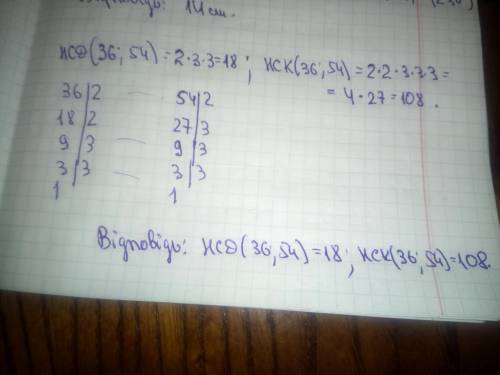 Відповідь: 14 см.
НСД(36; 54) = 2·3·3=18 ; НСК(36; 54) = 2·2·3·3·3 =
= 4·27=108.
36|2 54|2
18|2 27|3
9|3 9|3
3|3 3|3
1 1
Відповідь: НСД(36; 54)=18; НСК(36; 54)=108.